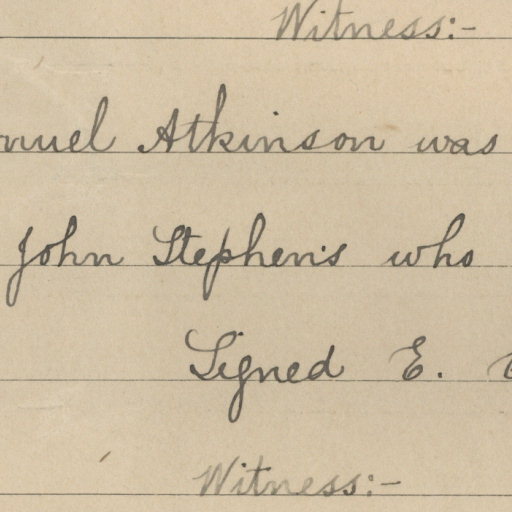 Witness:-
Atkinson was
John Stephens who
Signed E.
Witness:-